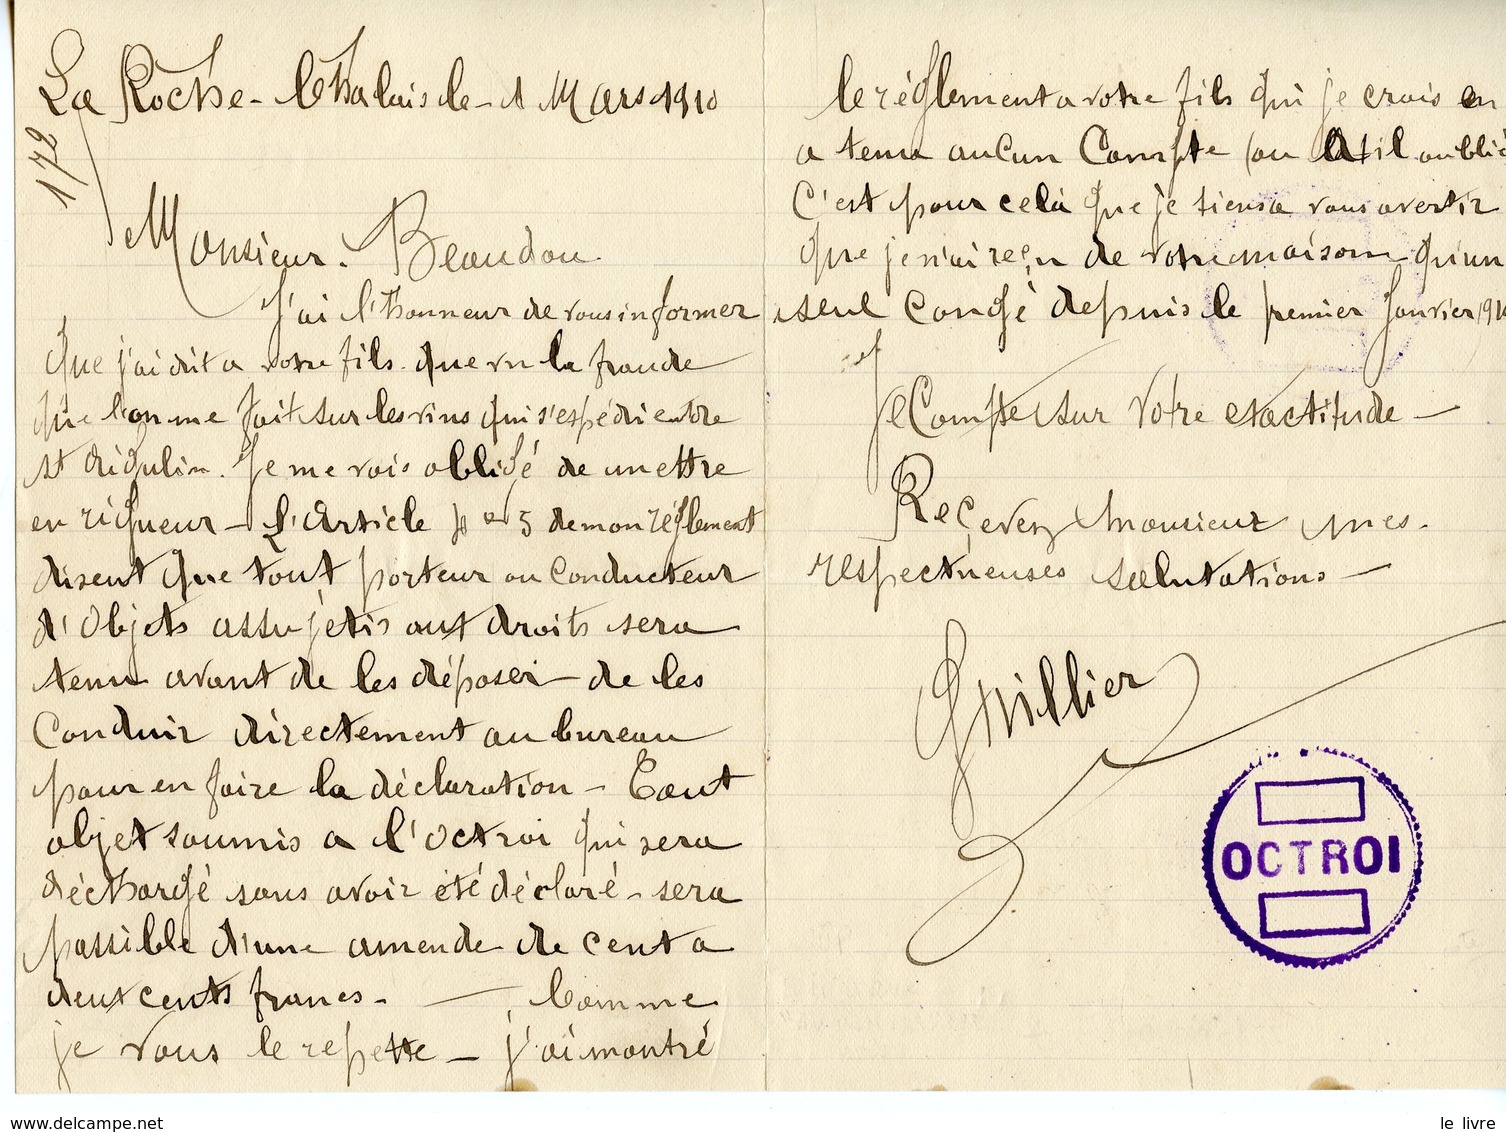 La Roche-Chalais le 1 Mars 1910
172
Monsieur. Beaudou
J'ai l'honneur de vous informer
Que j'ai dit a votre fils. que vu la fraude
que l'on me fait sur les vins qui s'espédi entre
St Aigulin. Je me vois obligé de mettre
en rigueur - L'Article 5 de mon réglement
disent que tout porteur ou conducteur
d'Objets assujétis aux droits sera
tenu avant de les déposer - de les
Conduir directement au bureau
pour en faire la déclaration - Tout
objet soumis a l'octroi qui sera
déchargé sans avoir été déclaré - sera
passible d'une amende de cent a
deux cents francs - Comme
je vous le repette - j'ai montré
le réglement a votre fils qui je crois en
a tenu aucun Compte (ou At il oublié
C'est pour celà que je tiens a vous avertir
que je n'ai reçu de votre maison qu'un
seul Congé depuis le premier Janvier 191
Je Compte sur Votre exactitude -
Reçevez Monsieur mes.
respectueuses salutations -
Guillier
OCTROI
www.delcampe.net
le livre